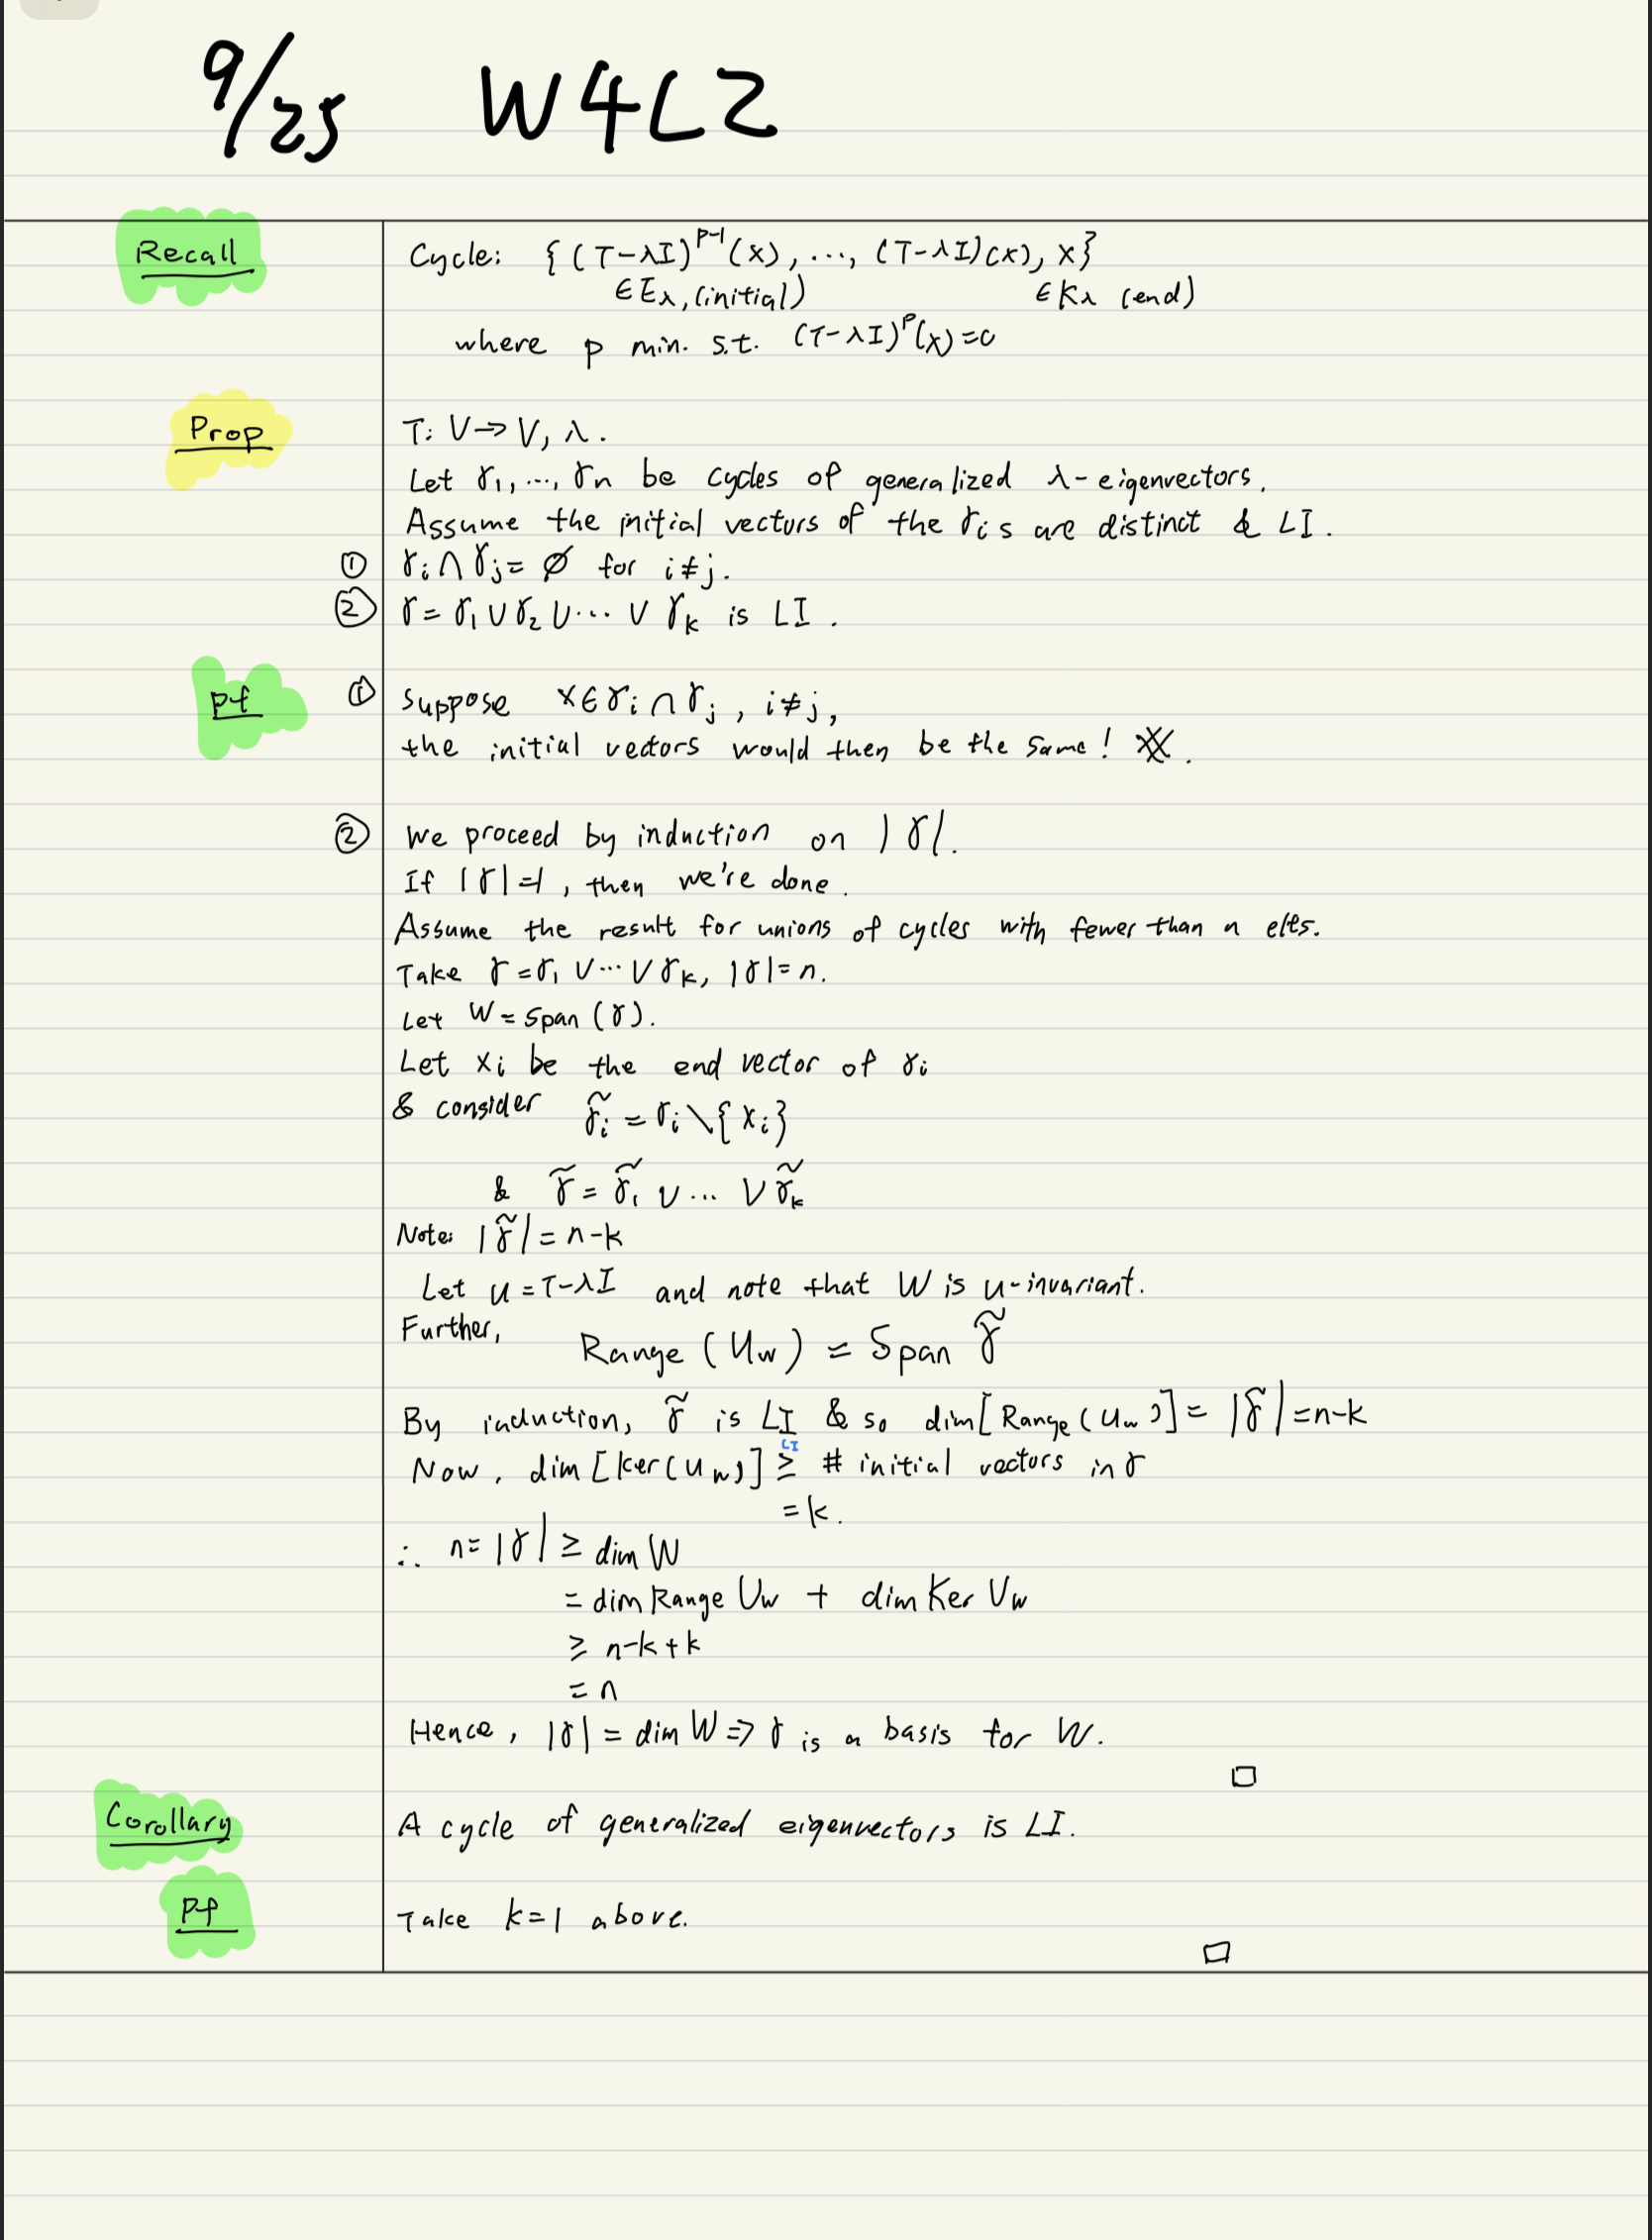 9/25 W4L2
Recall Cycle: { (T-λI)^{p-1}(x), ..., (T-λI)(x), x}
∈E_λ, (initial) ∈K_λ (end)
where p min. s.t. (T-λI)^p(x)=0
Prop T: V→V, λ.
Let γ_1, ..., γ_n be cycles of generalized λ-eigenvectors.
Assume the initial vectors of the γ_i s are distinct & LI.
① γ_i ∩ γ_j = ∅ for i≠j.
② γ = γ_1 ∪ γ_2 ∪ ... ∪ γ_k is LI.
pf ① Suppose x∈γ_i ∩ γ_j, i≠j,
the initial vectors would then be the same! ※.
② We proceed by induction on |γ|.
If |γ|=1, then we're done.
Assume the result for unions of cycles with fewer than n elts.
Take γ = γ_1 ∪ ... ∪ γ_k, |γ|=n.
Let W = Span(γ).
Let x_i be the end vector of γ_i
& consider γ̃_i = γ_i \ {x_i}
& γ̃ = γ̃_1 ∪ ... ∪ γ̃_k
Note: |γ̃| = n-k
Let U = T-λI and note that W is U-invariant.
Further, Range (U_W) = Span γ̃
By induction, γ̃ is LI & so dim[Range(U_W)] = |γ̃| = n-k
LI
Now, dim[ker(U_W)] ≥ # initial vectors in γ
= k.
∴ n = |γ| ≥ dim W
= dim Range U_W + dim Ker U_W
≥ n-k+k
= n
Hence, |γ| = dim W ⇒ γ is a basis for W.
□
Corollary A cycle of generalized eigenvectors is LI.
Pf Take k=1 above.
□